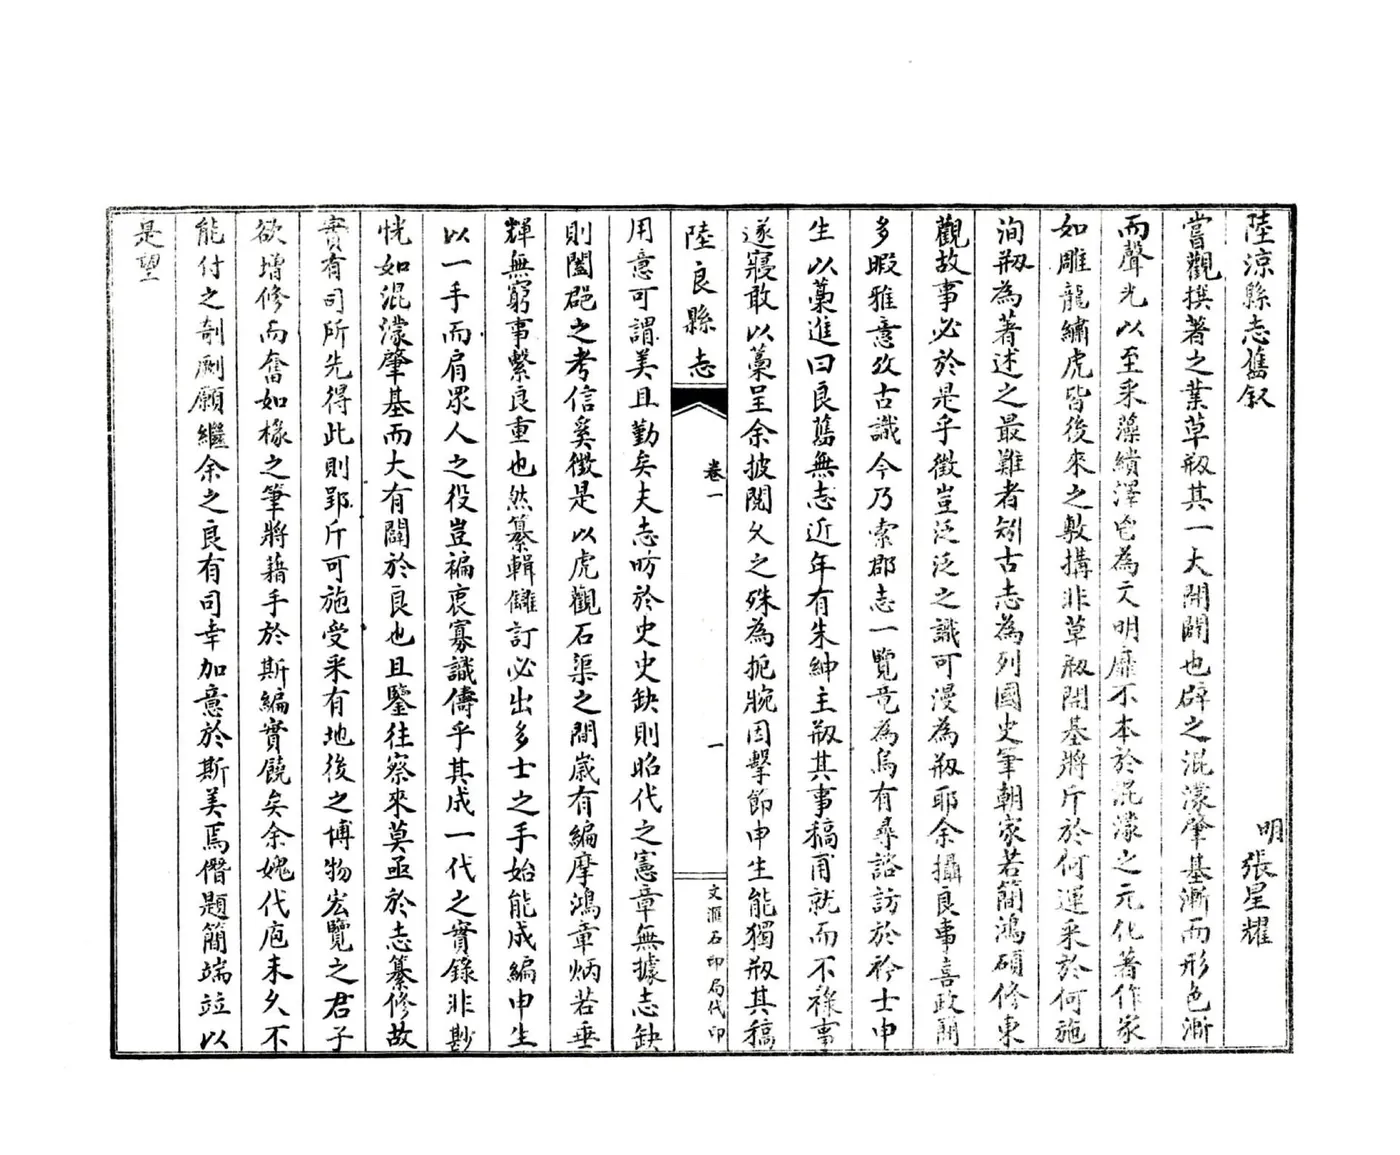 陸涼縣志舊叙
明張星耀
嘗觀撰著之業草剏其一大開闢也辟之混濛肇基漸而形色漸
而聲光以至采藻繢澤皆為文明靡不本於混濛之元化著作家
如雕龍繡虎皆後來之敷搆非草剏開基將斤於何運采於何施
洵剏為著述之最難者矧古志為列國史筆朝家若簡鴻碩修東
觀故事必於是乎徵豈泛泛之識可漫為剏耶余攝良事喜政閒
多暇雅意攷古識今乃索郡志一覽竟為烏有尋諮訪於衿士申
生以藁進曰良舊無志近年有朱紳主剏其事稿甫就而不祿事
遂寢敢以藁呈余披閱久之殊為扼腕因擊節申生能獨剏其稿
陸良縣志
卷一
一
文滙石印局代印
用意可謂美且勤矣夫志昉於史史缺則昭代之憲章無據志缺
則闔郡之考信奚徵是以虎觀石渠之間歲有編摩鴻章炳若垂
輝無窮事繫良重也然纂輯讎訂必出多士之手始能成編申生
以一手而肩眾人之役豈褊衷寡識儔乎其成一代之實錄非尠
恍如混濛肇基而大有闢於良也且鑒往察來莫亟於志纂修故
實有司所先得此則郢斤可施受采有地後之博物宏覽之君子
欲增修而奮如椽之筆將藉手於斯編實饒矣余媿代庖未久不
能付之剞劂願繼余之良有司幸加意於斯美焉僭題簡端竝以
是望